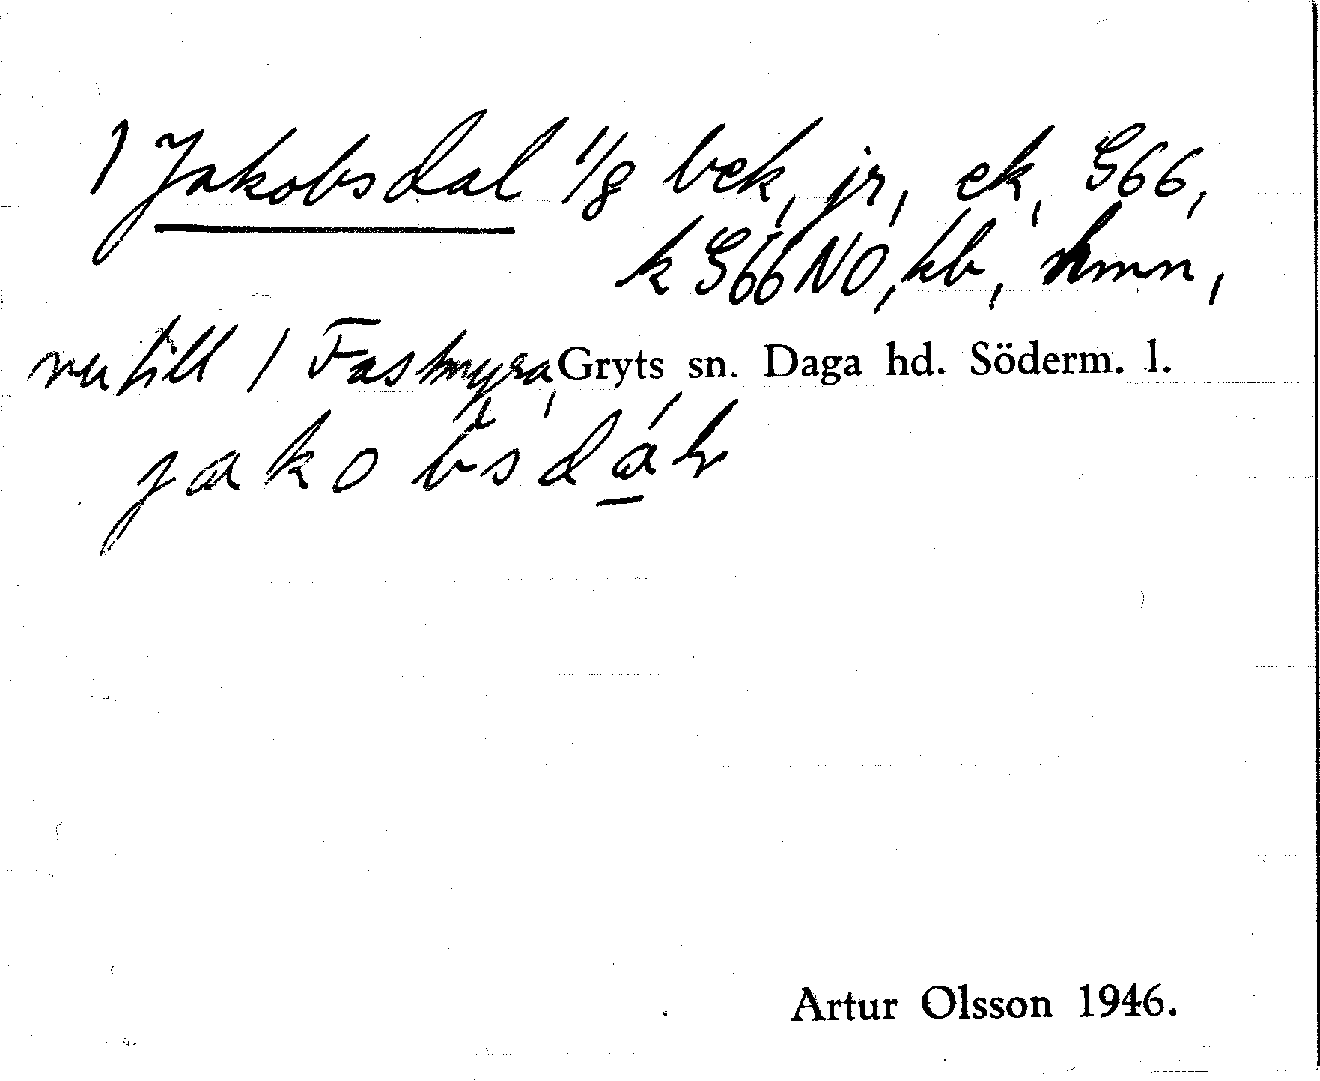 1 Jakobsdal 1/8 bek, jr, ek, G66,
k G66NO, kb, hmn,
nu till 1 Fastmyra, Gryts sn. Daga hd. Söderm. l.
jakobsdál
Artur Olsson 1946.